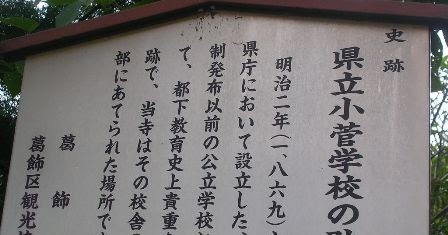 史跡
県立小菅学校の
明治二年(一、八六九)
県庁において設立した
制発布以前の公立学校
て、都下教育史上貴重
跡で、当寺はその校舎
部にあてられた場所で
葛飾
葛飾区観光